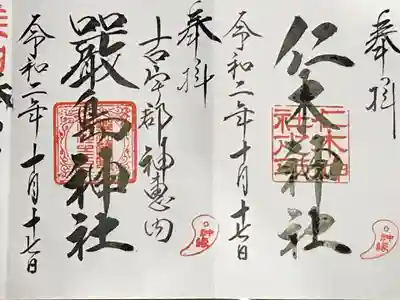 奉拝
仁木神社
令和二年十月十七日
神縁
奉拝
古宇郡神恵内
嚴島神社
令和二年十月十七日
神縁